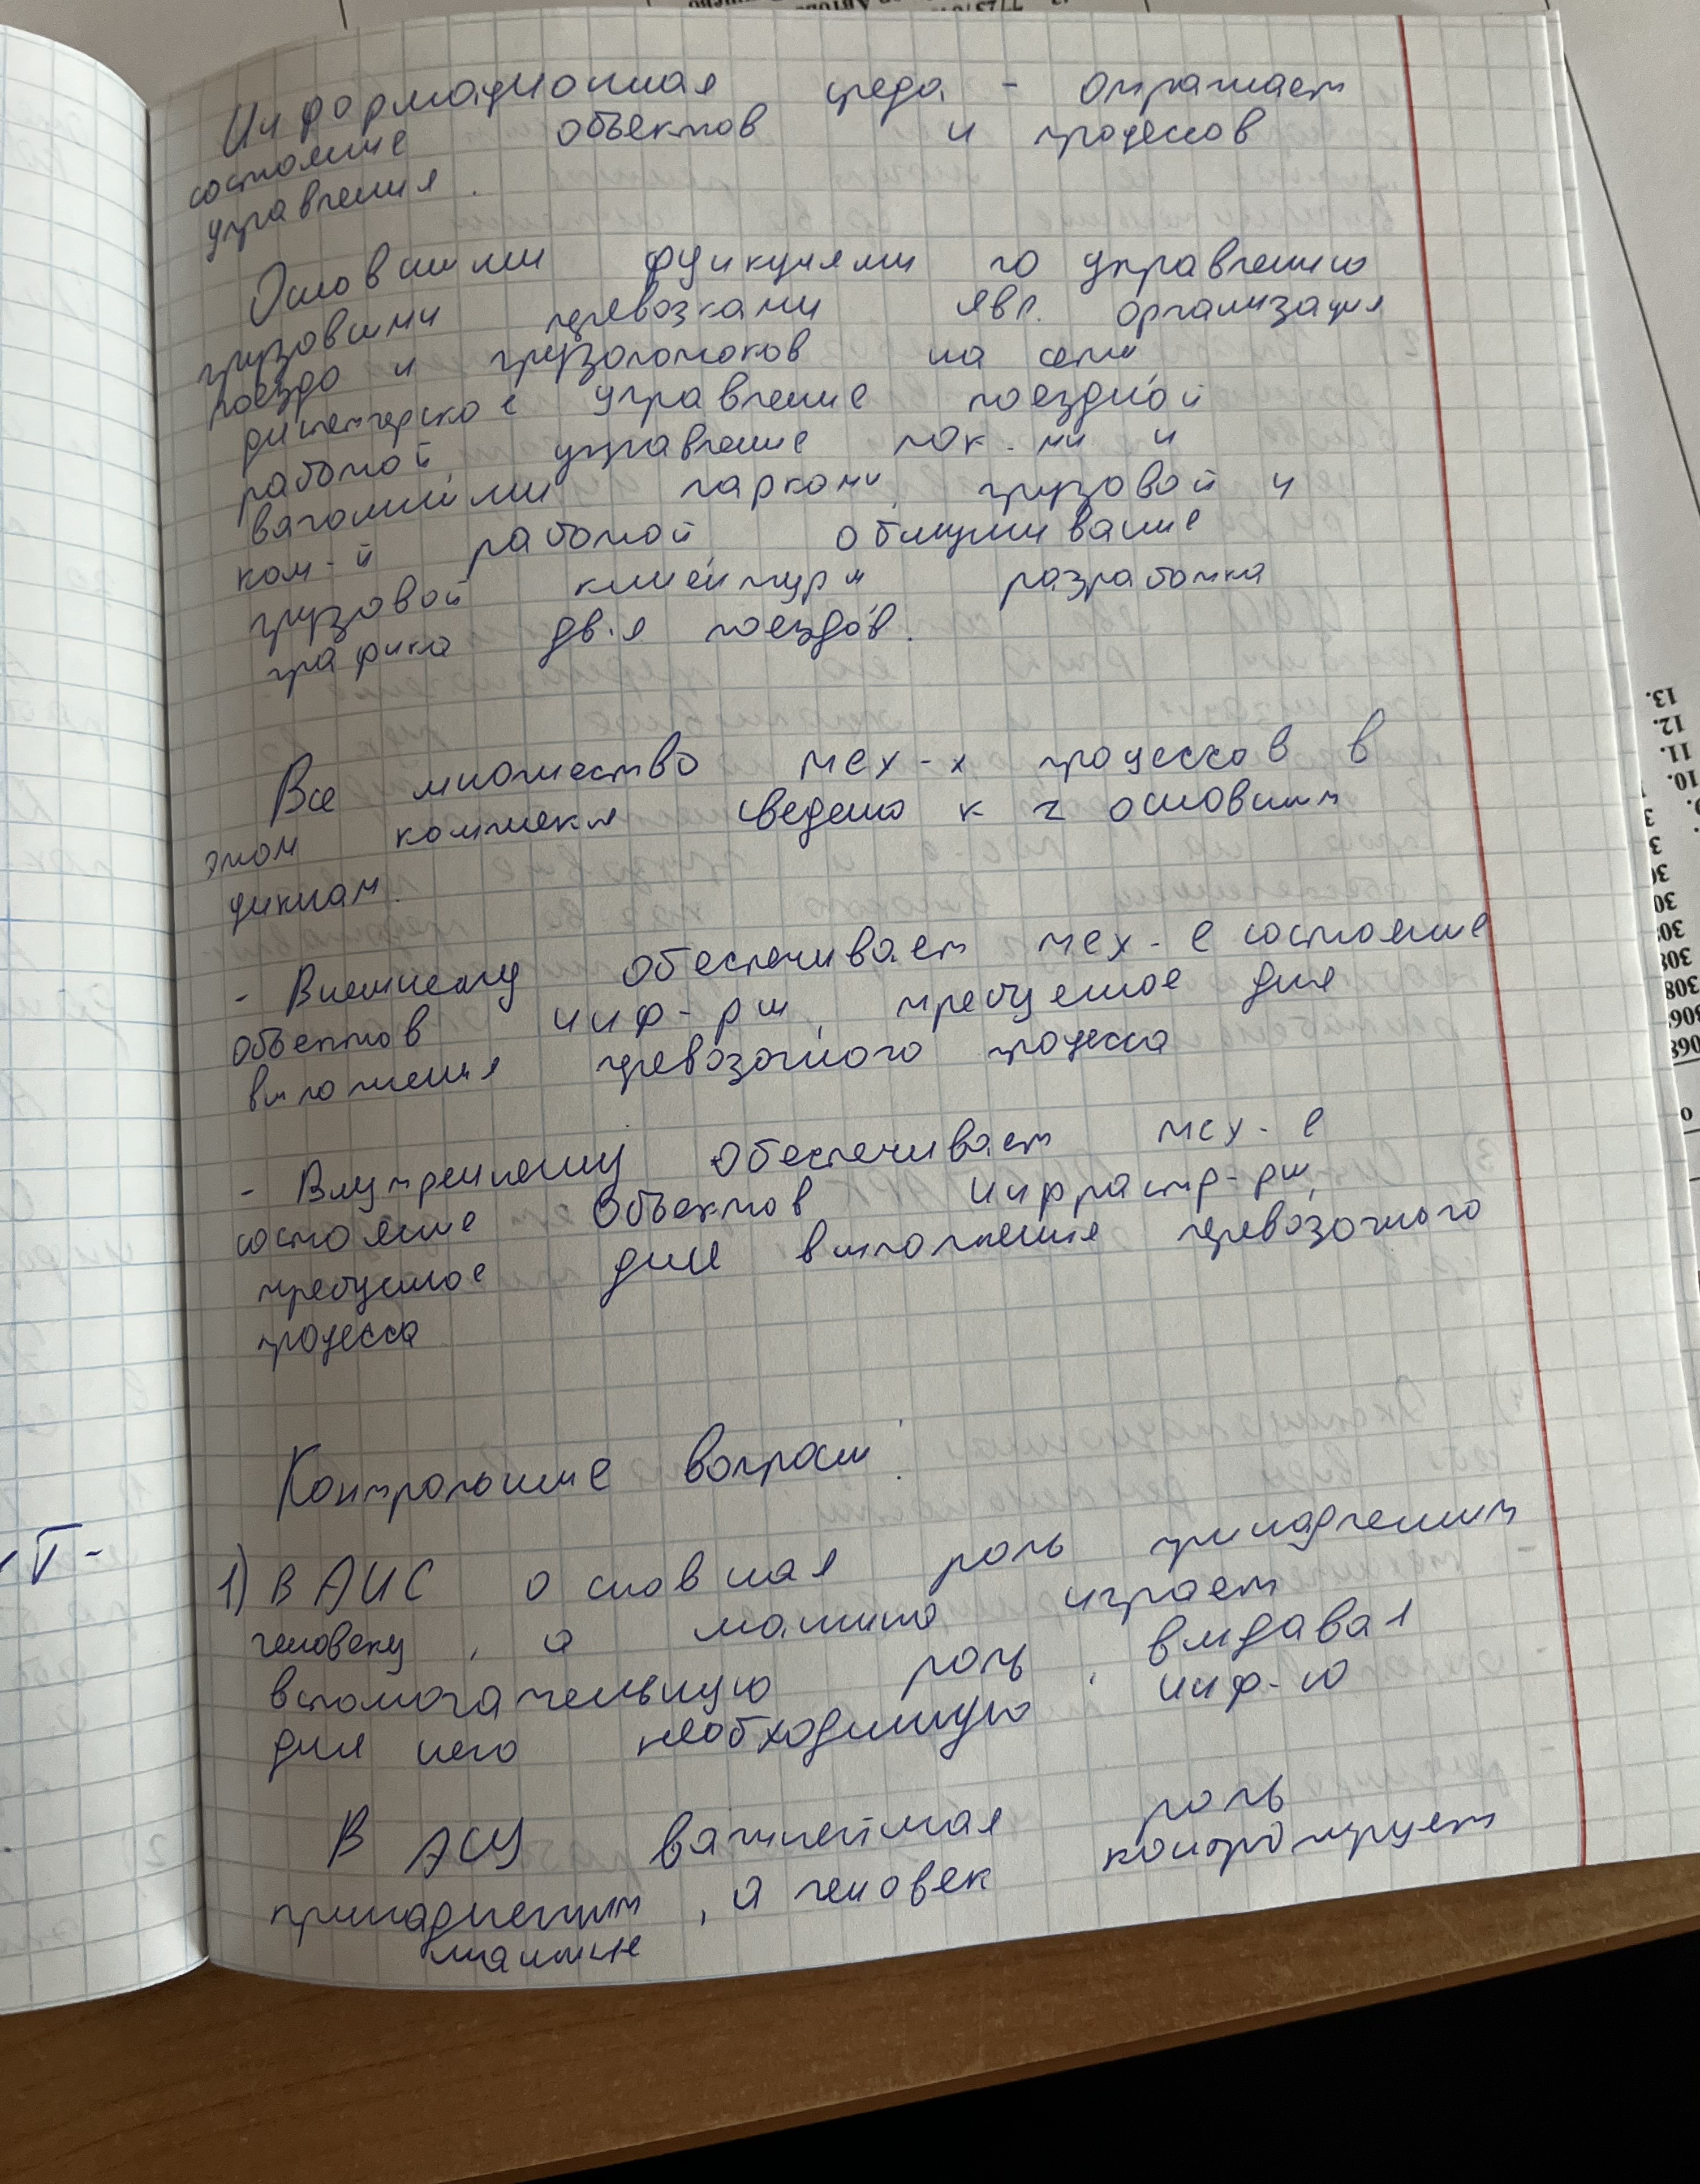 Информационная среда - отражает
состояние объектов и процессов
управления.
Основными функциями по управлению
грузовыми перевозками явл. организация
поездо и грузопотоков на сети
диспетчерское управление поездной
работой, управление лок-ми и
вагонными парками, грузовой и
ком-й работой, обслуживание
грузовой клиентуры разработка
графика дв-я поездов.
Все множество тех-х процессов в
этом комплексе сведено к 2 основным
циклам.
- Внешнему обеспечивает тех-е состояние
объектов инф-ры, требуемое для
выполнения перевозочного процесса
- Внутреннему обеспечивает тех-е
состояние объектов инфрастр-ры,
требуемое для выполнения перевозочного
процесса
Контрольные вопросы:
1) В АИС основная роль принадлежит
человеку, а машина играет
вспомогательную роль, выдавая
для него необходимую инф-ю
В АСУ важнейшая роль
принадлежит, а человек контролирует
машине
13.
12.
11.
10.